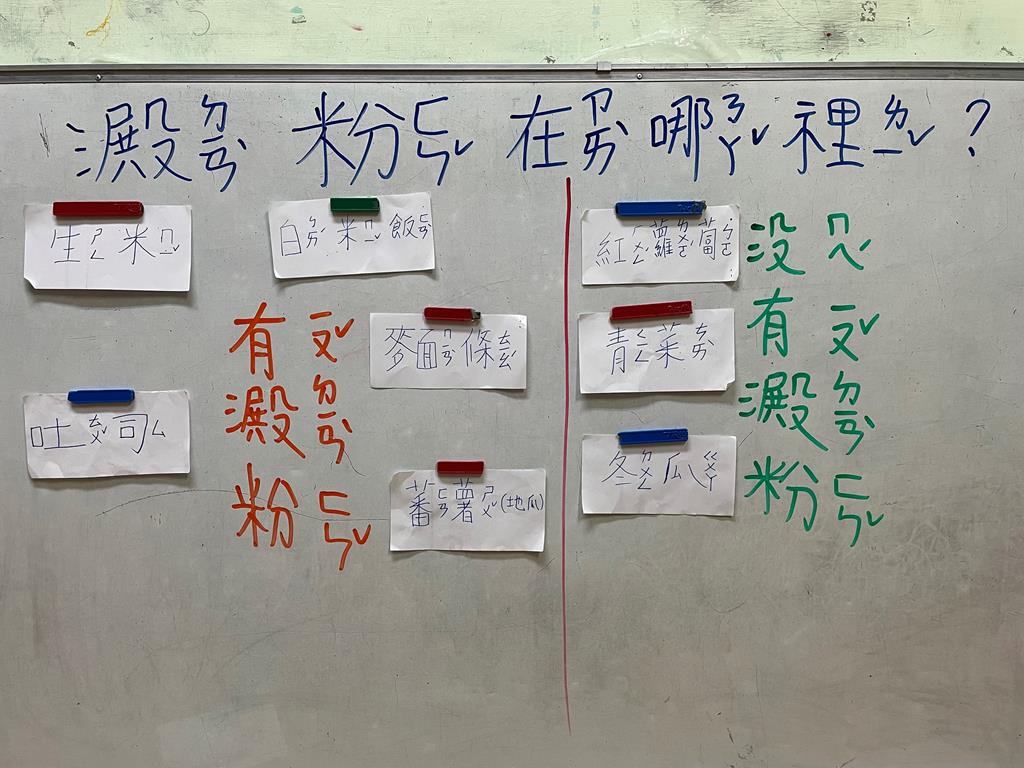 澱ㄉㄧㄢˋ粉ㄈㄣˇ在ㄗㄞˋ哪ㄋㄚˇ裡ㄌㄧˇ？
生ㄕㄥ米ㄇㄧˇ
白ㄅㄞˊ米ㄇㄧˇ飯ㄈㄢˋ
有ㄧㄡˇ
澱ㄉㄧㄢˋ
粉ㄈㄣˇ
麥面ㄇㄧㄢˋ條ㄊㄧㄠˊ
吐ㄊㄨˇ司ㄙ
蕃ㄈㄢ薯ㄕㄨˇ(地瓜)
紅ㄏㄨㄥˊ蘿ㄌㄨㄛˊ蔔ㄅㄛ˙
青ㄑㄧㄥ菜ㄘㄞˋ
冬ㄉㄨㄥ瓜ㄍㄨㄚ
沒ㄇㄟˊ
有ㄧㄡˇ
澱ㄉㄧㄢˋ
粉ㄈㄣˇ